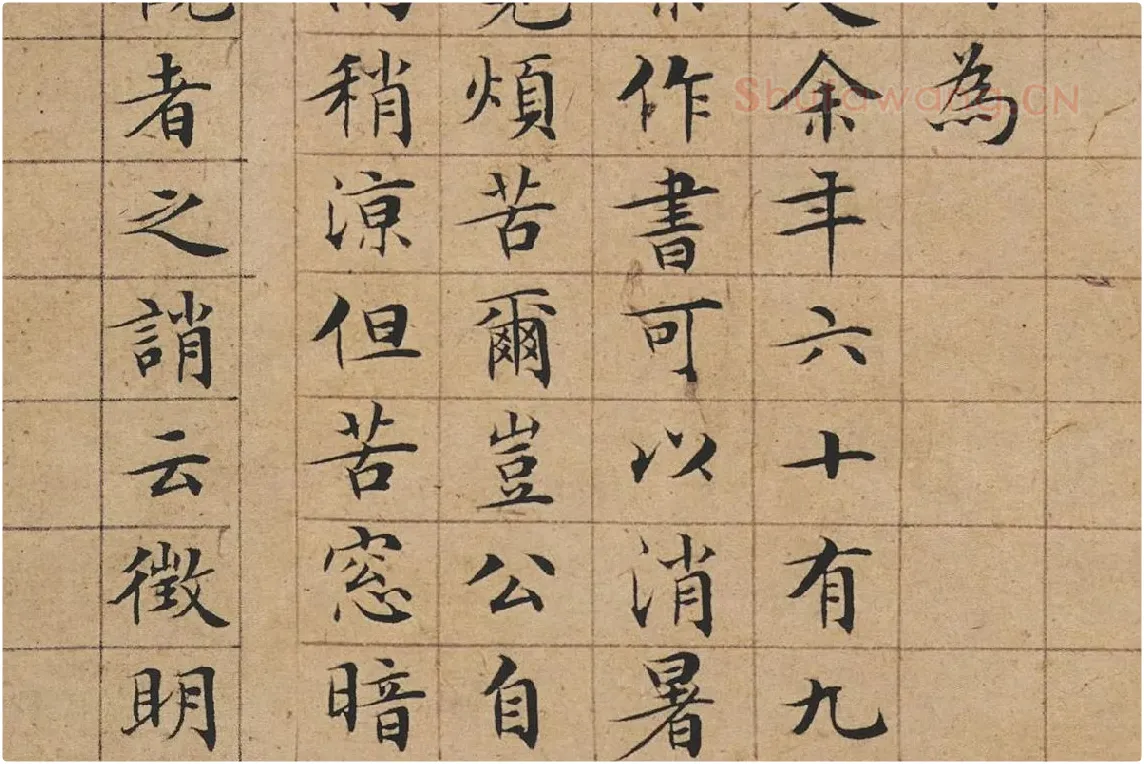 為
余年六十有九
作書可以消暑
煩苦爾豈公自
稍涼但苦窓暗
者之誚云徵明
Shufawang.CN